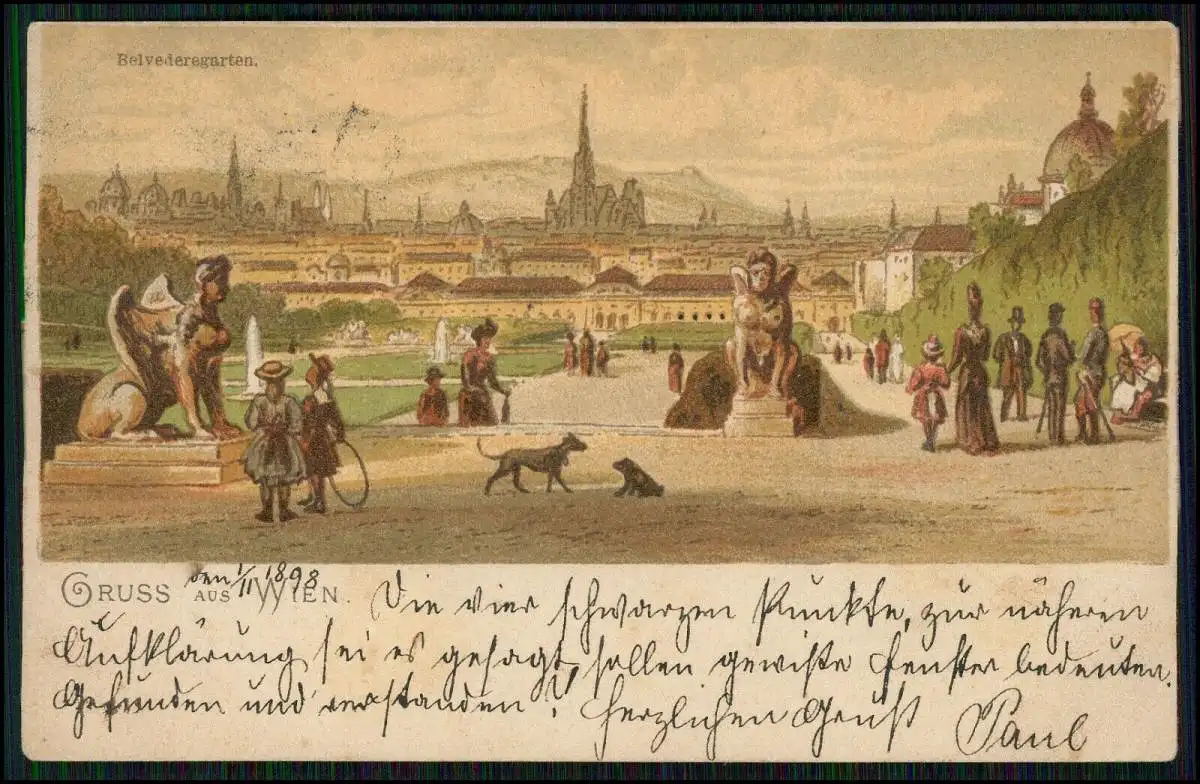 Belvederegarten.
GRUSS AUS WIEN.
den 1/11 1898
Die vier schwarzen Punkte, zur näheren
Aufklärung sei es gesagt, sollen gewiße Fenster bedeuten.
Gefunden und verstanden?! Herzlichen Gruß Paul